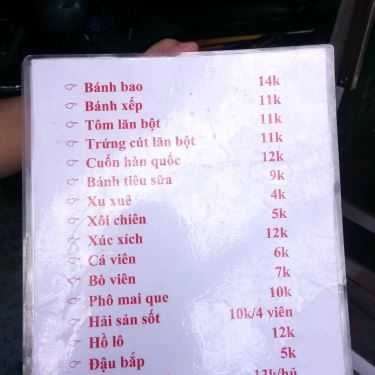 Bánh bao 14k
Bánh xếp 11k
Tôm lăn bột 11k
Trứng cút lăn bột 11k
Cuốn hàn quốc 12k
Bánh tiêu sữa 9k
Xu xuê 4k
Xôi chiên 5k
Xúc xích 12k
Cá viên 6k
Bò viên 7k
Phô mai que 10k
Hải sản sốt 10k/4 viên
Hồ lô 12k
Đậu bắp 5k
12k/hủ